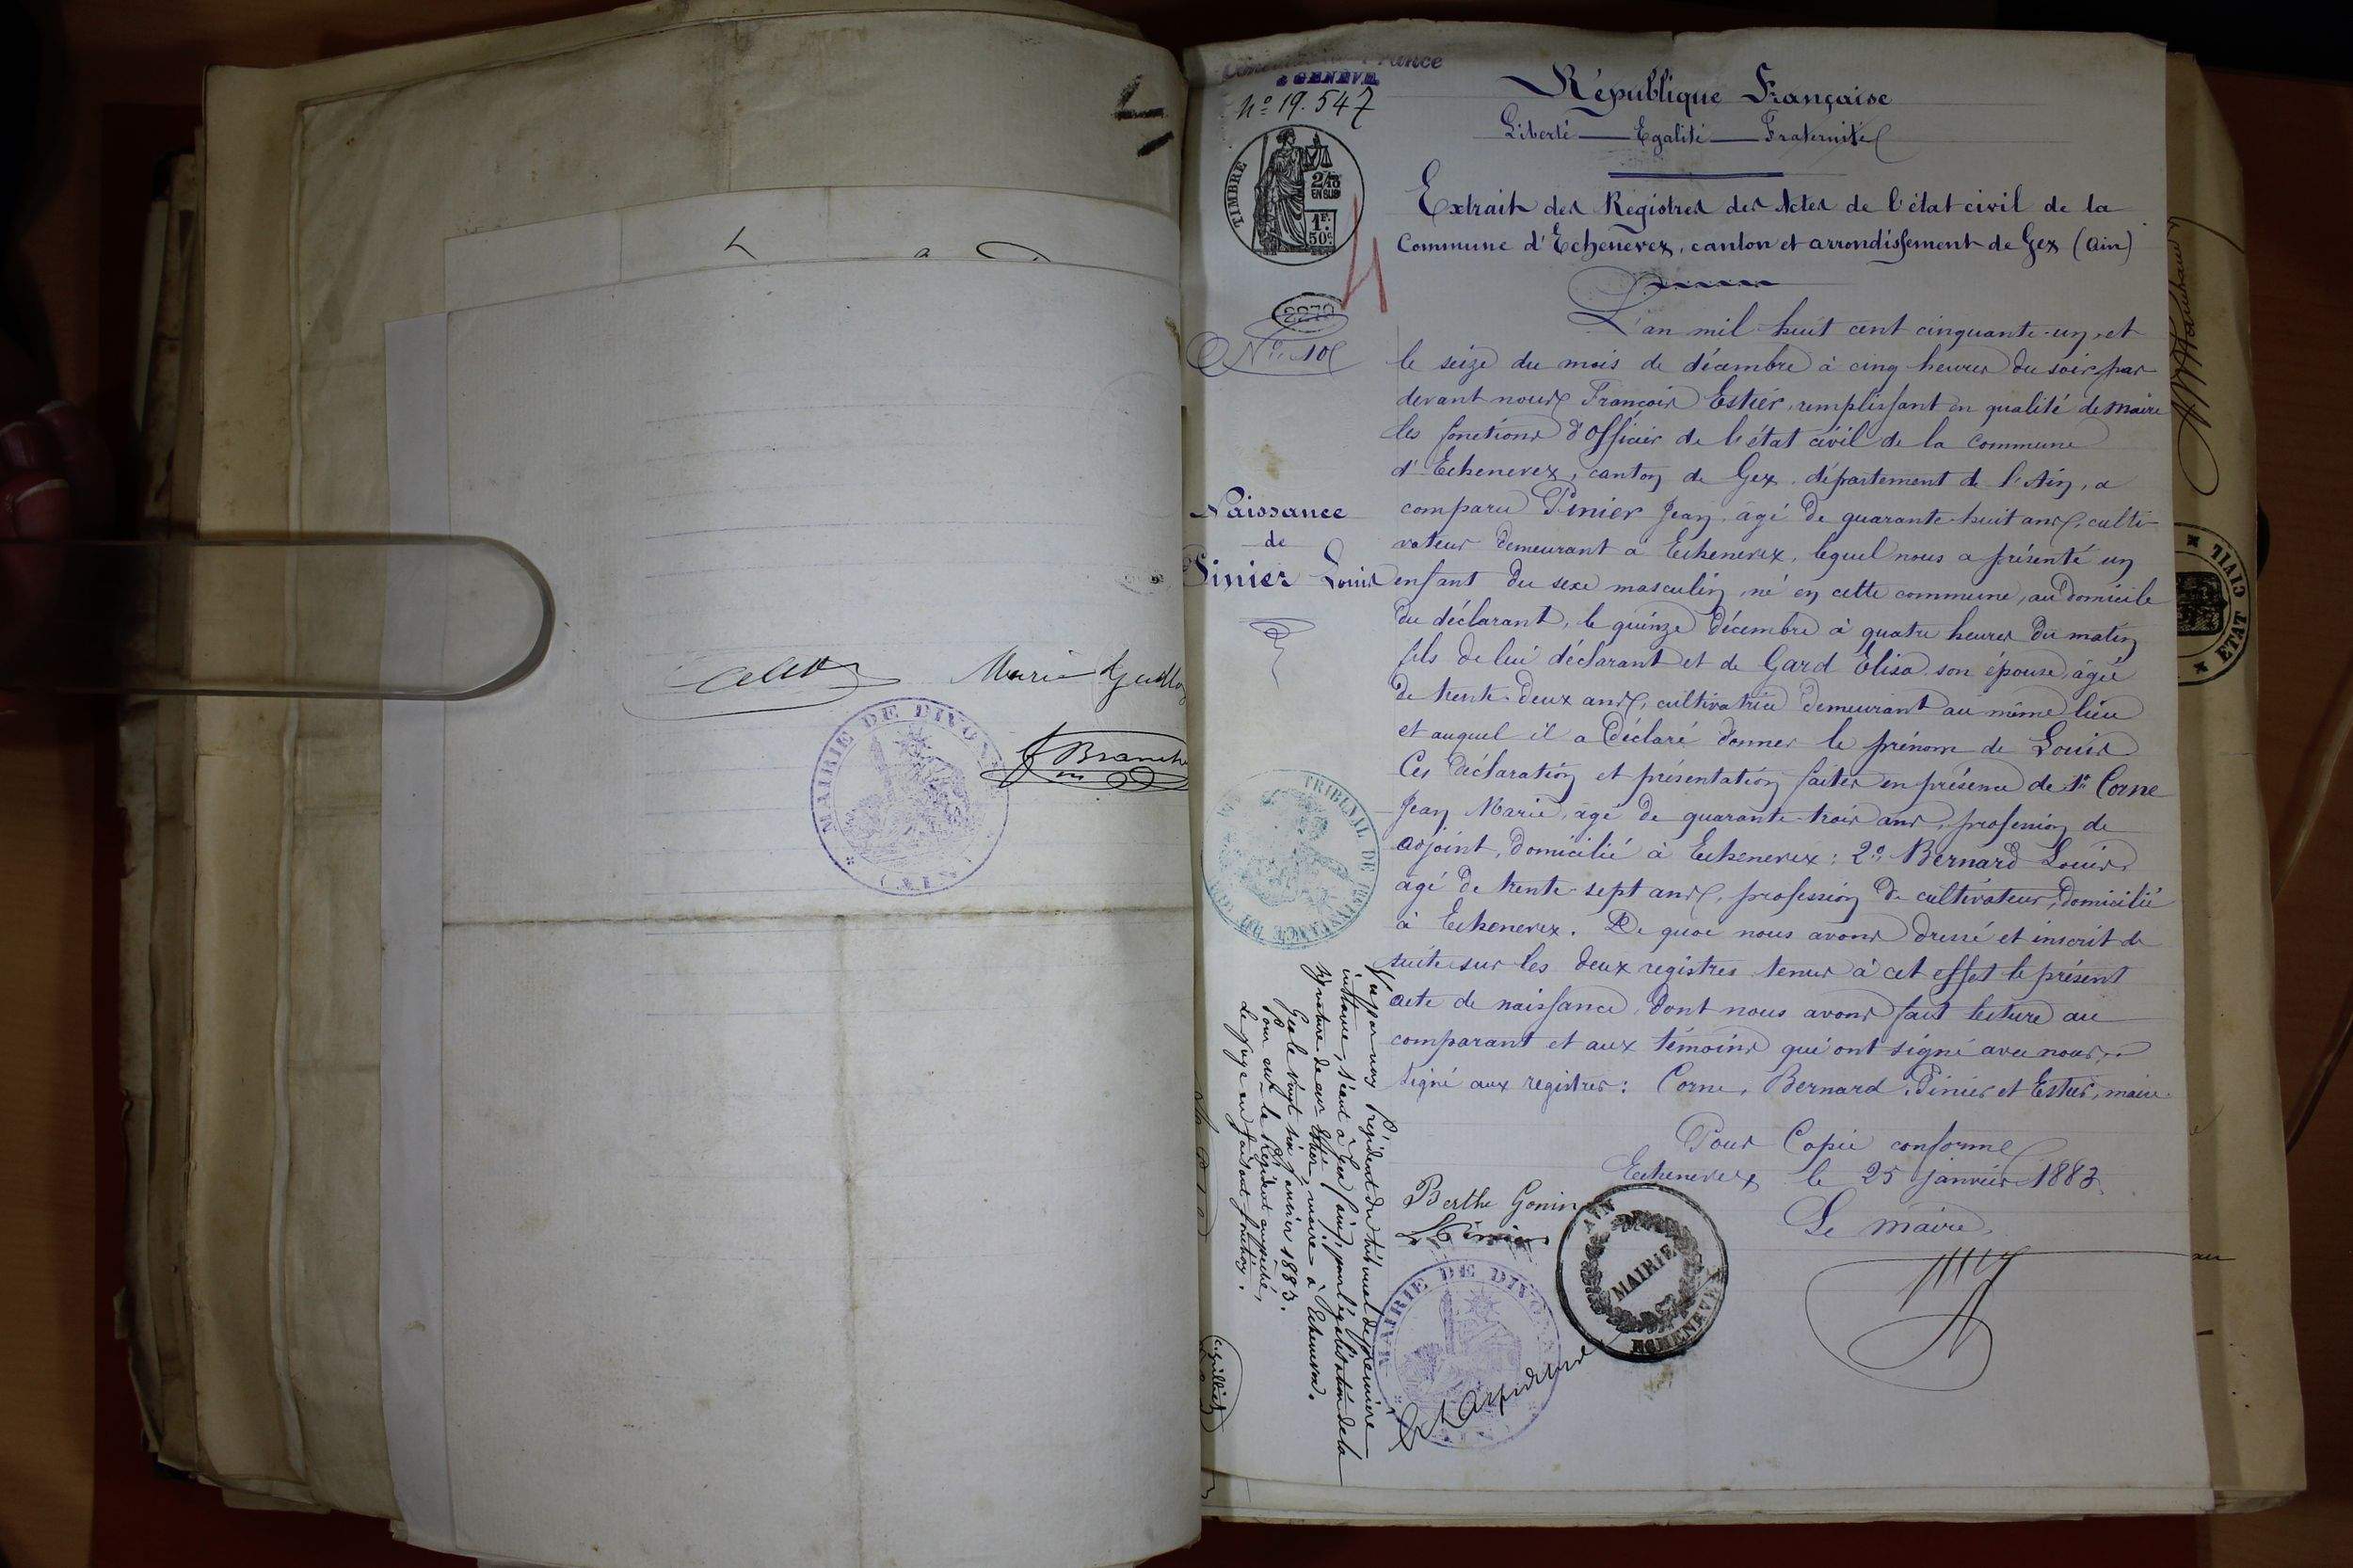 MAIRIE DE DIVONNE
(AIN)
Consulat de France
à GENÈVE
No 19.547
TIMBRE
2/10
EN SUS
1F.
50c.
2270
No 10
République Française
Liberté — Egalité — Fraternité
Extrait des Registres des Actes de l'état civil de la
Commune d'Echenevex, canton et arrondissement de Gex (Ain)
L'an mil huit cent cinquante-un et
le seize du mois de décembre à cinq heures du soir par
devant nous François Estier, remplissant en qualité de maire
les fonctions d'Officier de l'état civil de la commune
d'Echenevex, canton de Gex, département de l'Ain, a
comparu Pinier Jean, âgé de quarante-huit ans, culti-
vateur demeurant à Echenevex, lequel nous a présenté un
Naissance
de
Pinier Louis
enfant du sexe masculin, né en cette commune, au domicile
du déclarant, le quinze décembre à quatre heures du matin
fils de lui déclarant et de Gard Elisa son épouse, âgée
de trente-deux ans, cultivatrice demeurant au même lieu
et auquel il a déclaré donner le prénom de Louis
Ces déclaration et présentation faites en présence de 1o Corne
Jean Marie, âgé de quarante-trois ans, profession de
adjoint, domicilié à Echenevex : 2o Bernard Louis
âgé de trente-sept ans, profession de cultivateur, domicilié
à Echenevex. De quoi nous avons dressé et inscrit de
suite sur les deux registres tenus à cet effet le présent
acte de naissance, dont nous avons fait lecture au
comparant et aux témoins qui ont signé avec nous.
Signé aux registres : Corne, Bernard, Pinier et Estier, maire
Pour Copie conforme
Echenevex le 25 janvier 1883
Le maire
Berthe Gonin
MAIRIE
AIN
ECHENEVEX
MAIRIE DE DIVONNE
AIN
TRIBUNAL DE 1re INSTANCE DE GEX
Vu par nous Président du tribunal de première
instance, séant à Gex (Ain), pour légalisation de la
signature de Mr Estier, maire à Echenevex.
Gex le vingt six janvier 1883.
Pour le Président empêché,
Le juge en faisant fonction.
ETAT CIVIL